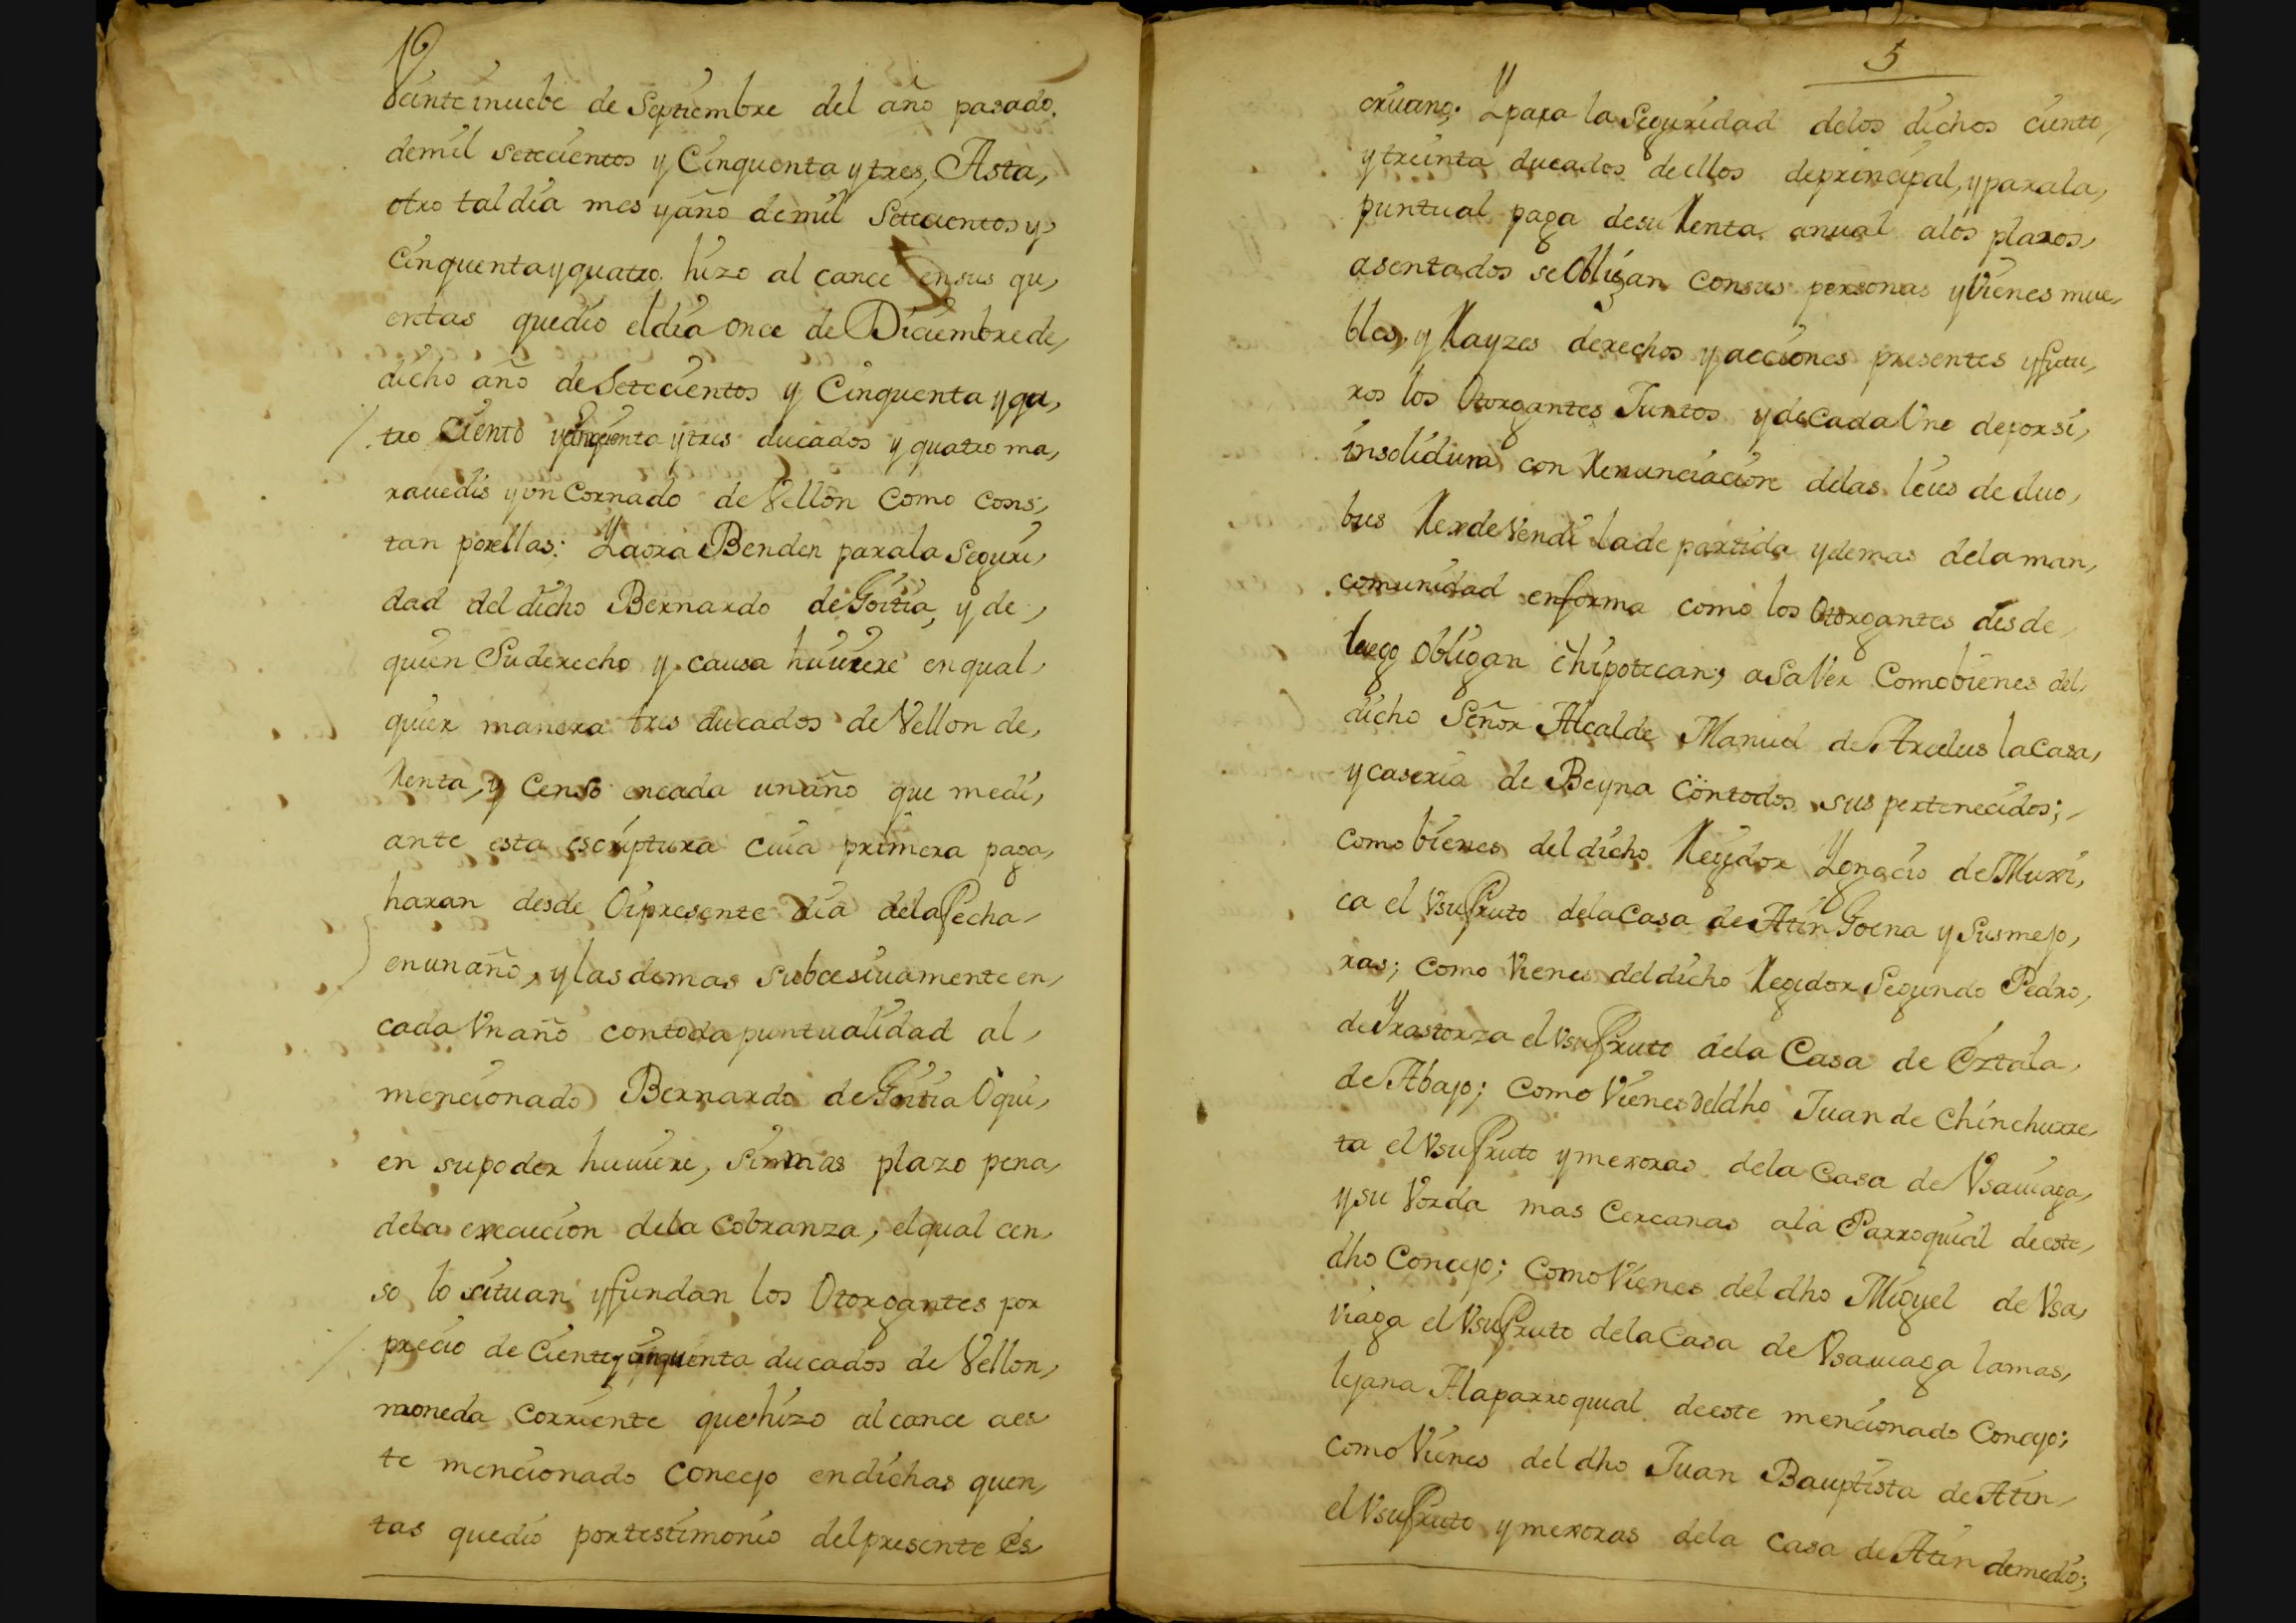 Veinte inuebe de Septiembre del año pasado,
demil setecientos y Cinquenta ytres, Asta,
otro taldia mes yaño demil Setecientos y
Cinquentayquatro, hizo al cance ensus qu,
entas quedio eldia once de Diciembrede,
dicho año deSetecientos y Cinquenta yqu,
tro Ciento ycinquenta ytres ducados y quatro ma,
rauedis yvn Cornado de Vellon Como Cons,
tan porellas; Yaora Benden parala Seguri,
dad deldicho Bernardo deGoitia, y de,
quien Suderecho y causa huuiere enqual,
quier manera tres ducados de Vellon de,
Renta, y Censo encada unaño que medi,
ante esta escriptura cuia primera paga,
haran desde Oipresente dia delafecha
enunaño, ylasdemas subcesiuamente en,
cada Vnaño contodapuntualidad al,
mencionado Bernardo deGoitia Oqui,
en supoder huuiere, sinmas plazo pena,
dela execucion dela Cobranza, elqual cen,
so lo situan yfundan los Otorgantes por
precio de Cientoycinquenta ducados de Vellon,
moneda Corriente quehizo alcance aes
te mencionado Concejo endichas quen,
tas quedio portestimonio delpresente Es
5
criuano; Ypara laSeguridad delos dichos ciento,
ytreinta ducados deellos deprincipal, yparala,
puntual paga desu Renta anual alos plazos,
asentados seObligan consus personas yVienes mue,
bles, y Rayzes derechos yacciones presentes yfutu,
ros los Otorgantes Juntos ydecadaUno deporsi,
insolidum con Renunciacion delas leies de duo,
bus Rexdevendi lade partida ydemas delaman,
comunidad enforma como los Otorgantes desde,
luego obligan ehipotecan; aSaVer Comobienes del,
dicho Señor Alcalde Manuel deArculus lacasa,
ycaseria de Beyna Contodos sus pertenecidos;
comobienes deldicho Regidor Ygnacio deMuxi,
ca el Vsufruto delaCasa deAtinGoena y Susmejo,
ras; como Vienes deldicho RegidorSegundo Pedro,
deYrastorza elVsufruto dela Casa de Oztala,
deAbajo; Como Vienes deldho Juan de Chinchurre,
ta elVsufruto ymexoras dela Casa de Vsauiaga,
ysu Vorda mas Cercanas ala Parroquial deeste,
dho Concejo; ComoVienes del dho Miguel de Vsa,
viaga elVsufruto delaCasa de Vsauiaga lamas,
lejana Alaparroquial deeste mencionado Concejo;
comoVienes del dho Juan Bauptista deAtin,
elVsufruto ymexoras dela Casa deAtin demedio;